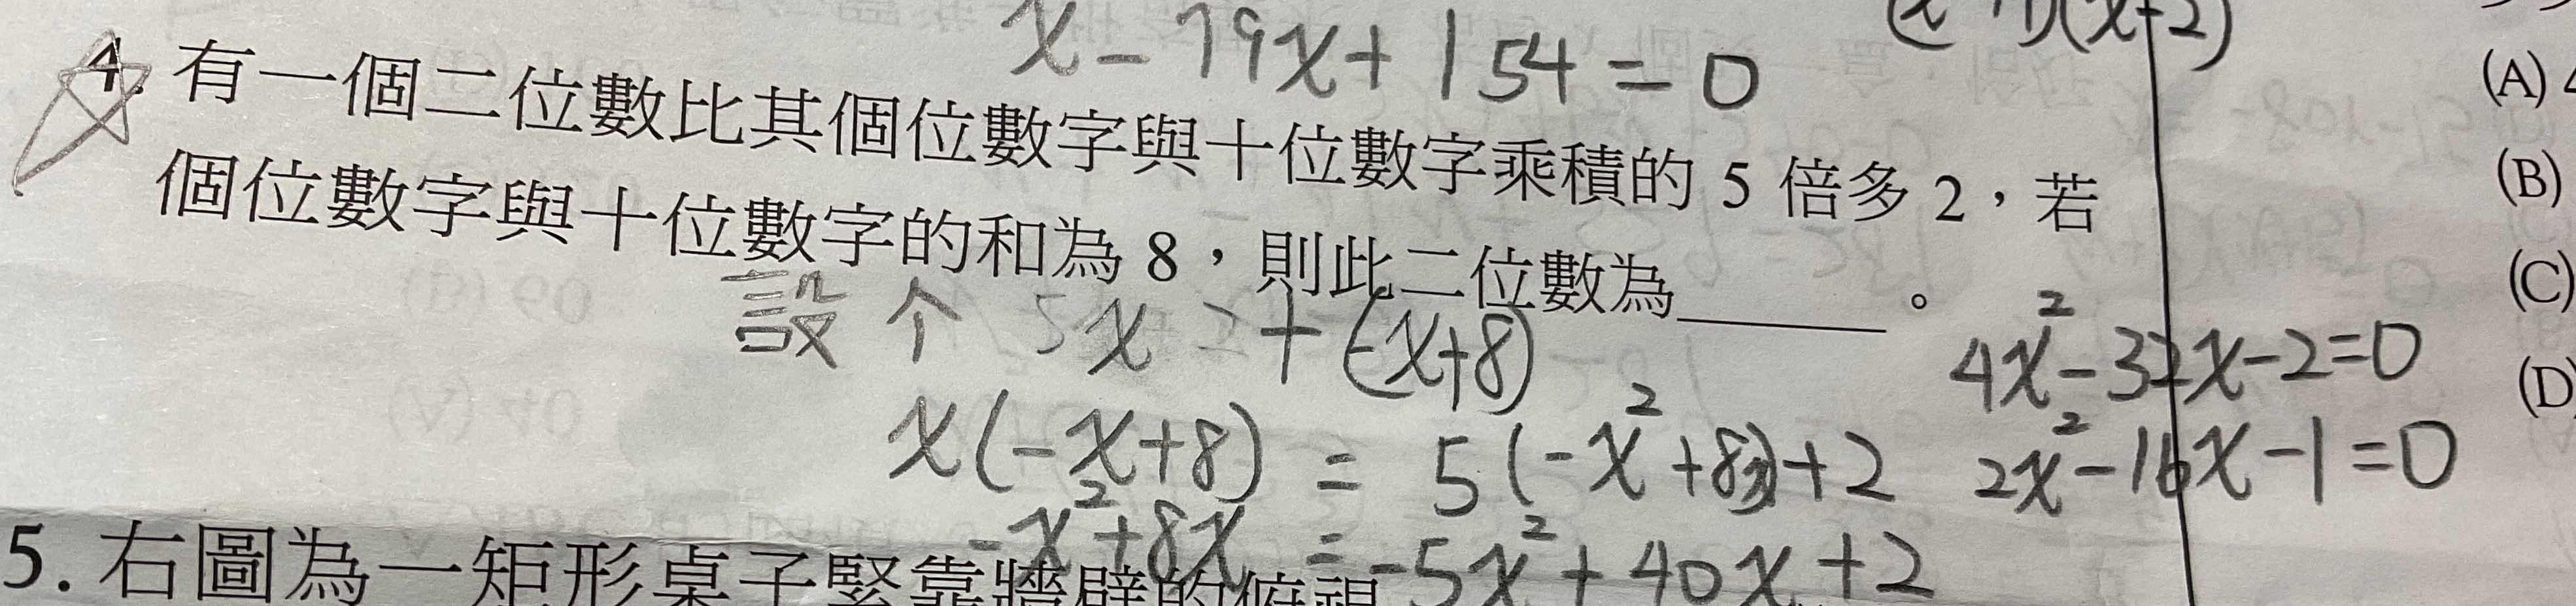 x - 79x + 154 = 0
4. 有一個二位數比其個位數字與十位數字乘積的 5 倍多 2，若
個位數字與十位數字的和為 8，則此二位數為______。
設 个
(-x+8)
x(-x+8) = 5(-x²+8x)+2
-x²+8x = -5x²+40x+2
4x²-32x-2=0
2x²-16x-1=0
5. 右圖為一矩形桌子緊靠牆壁的俯視
(A)
(B)
(C)
(D)